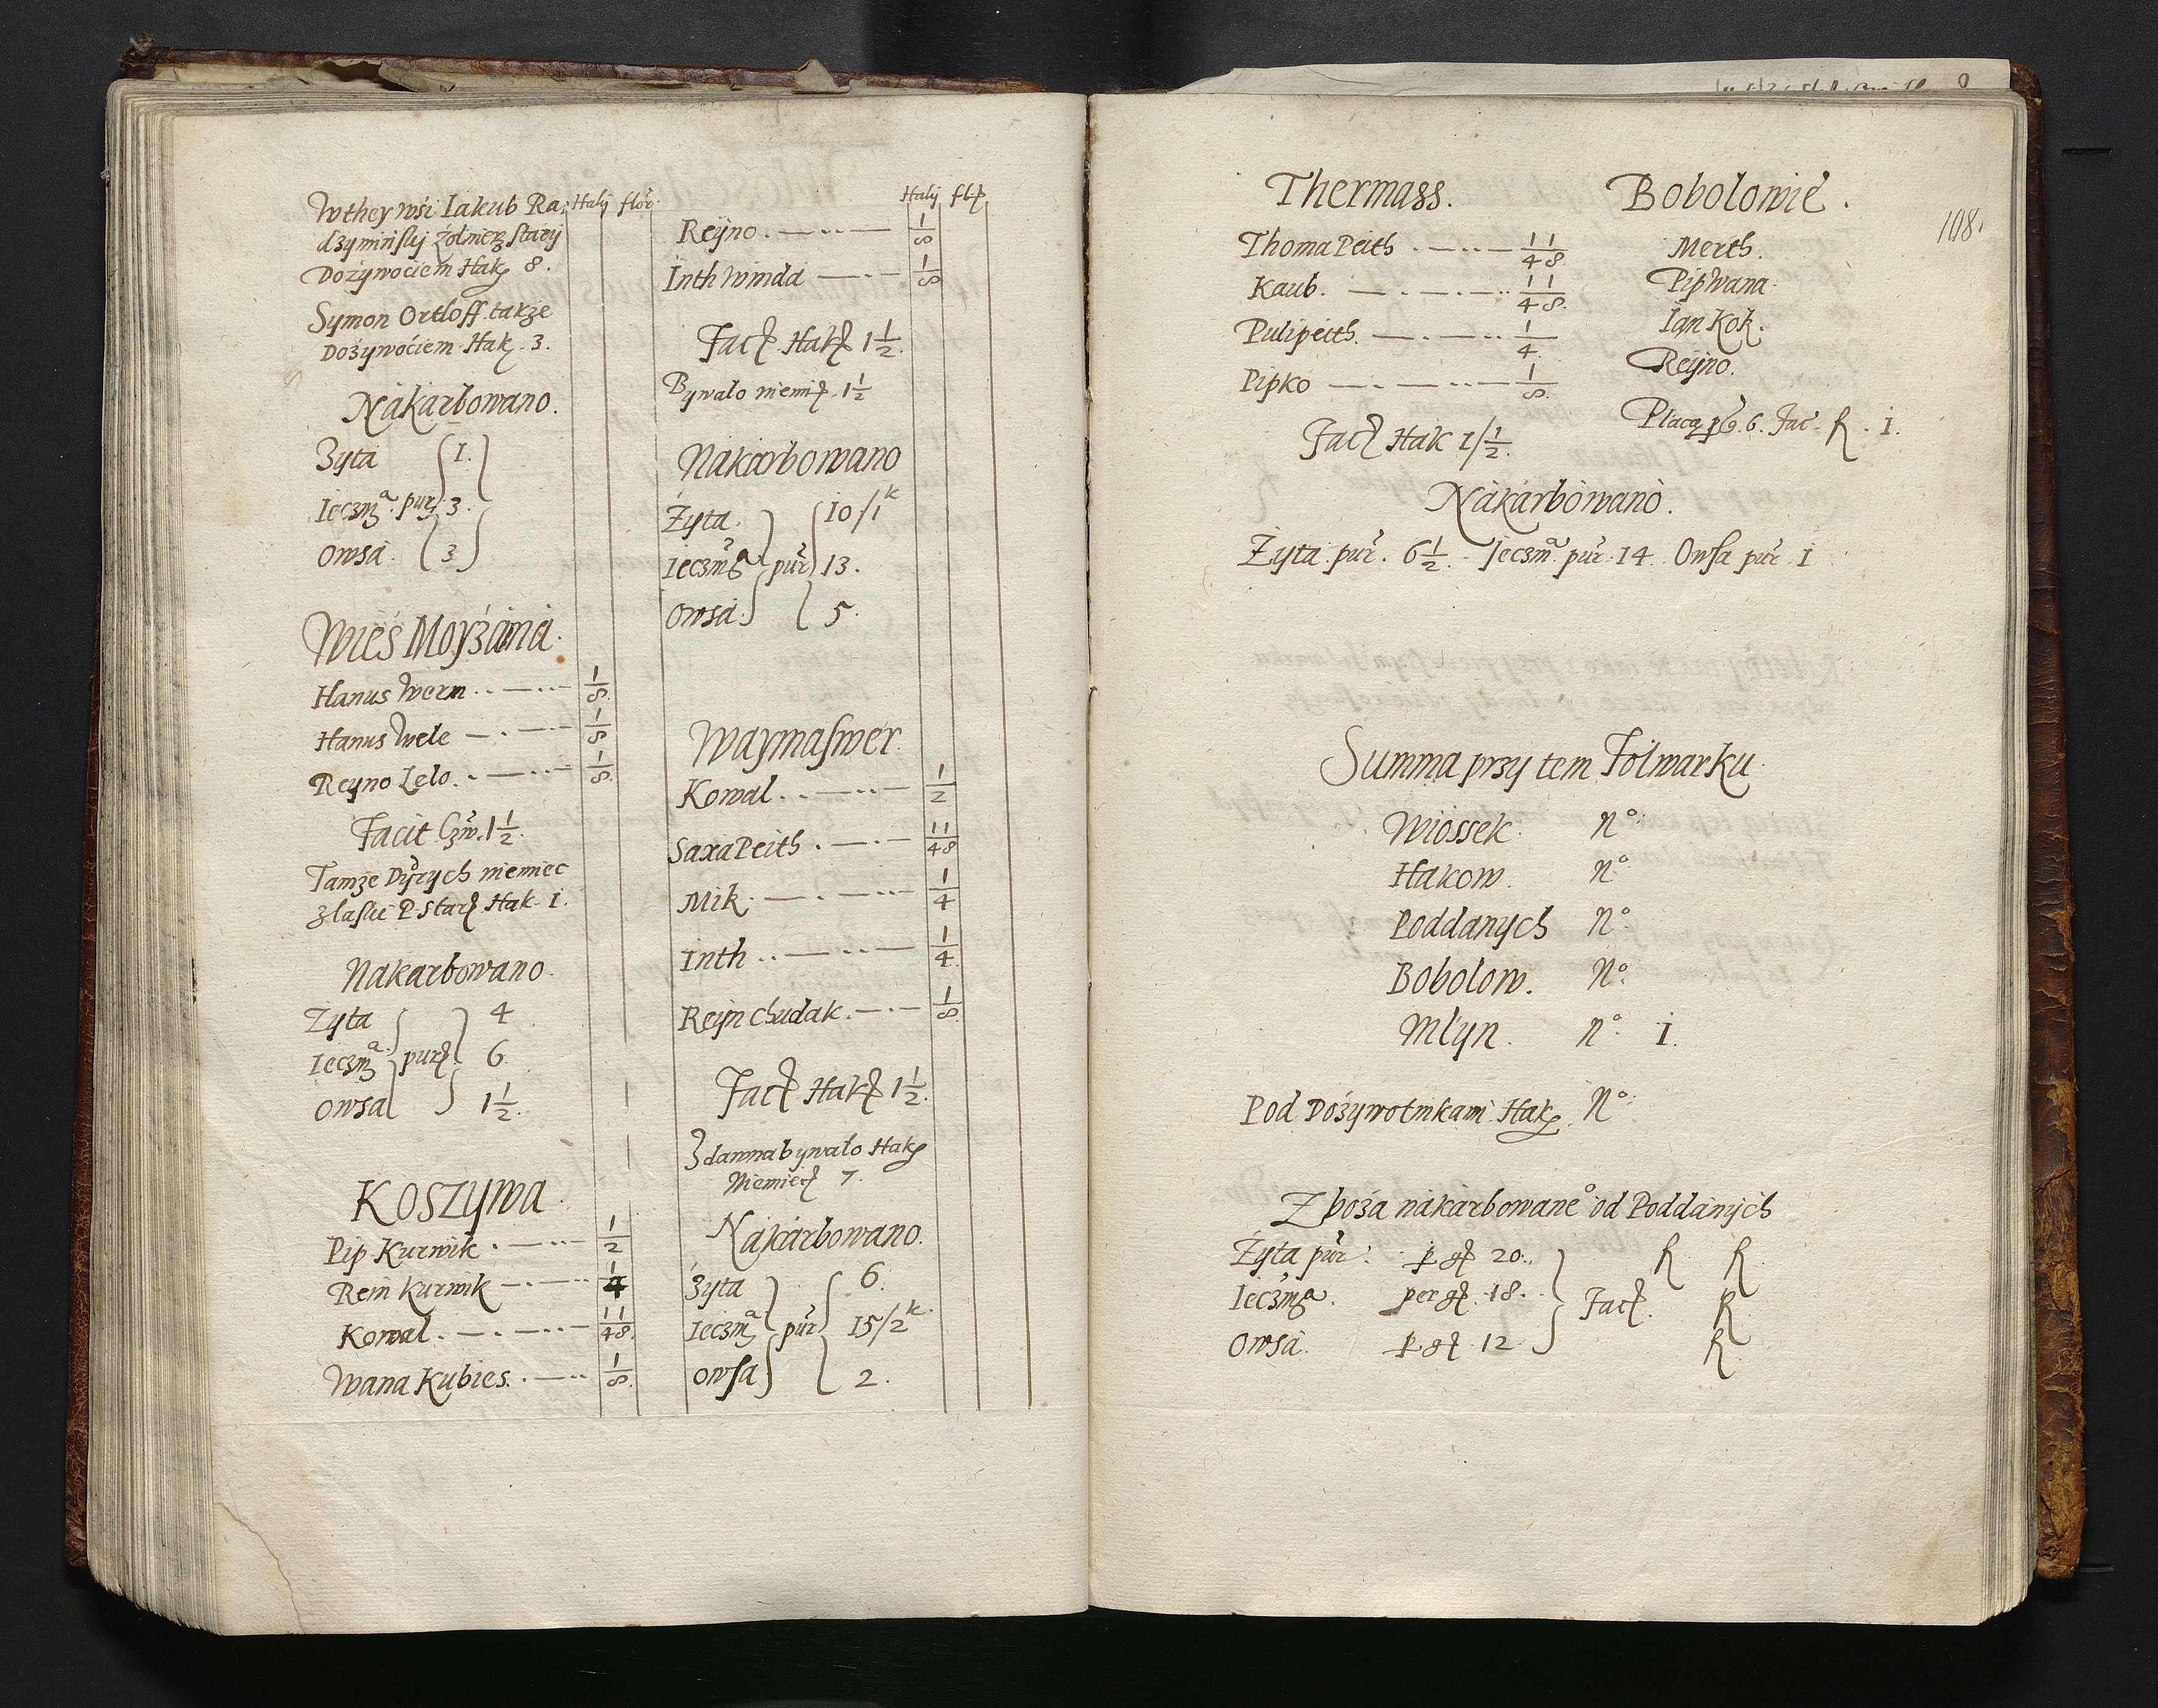 Wthey wśi Iakub Ra: Halÿ flor:
dzyminsky żołnierz stary
Dożywociem Hak 8.
Symon Ortloff także
Dożywociem Hak 3.
Nakarbowano.
Zyta 1.
Ieczm^a pur 3.
Owsa 3
Wies Moyżana.
Hanus Wern 1/8
Hanus Wele 1/8
Reyno Lelo 1/8
Facit Czw. 1 1/2.
Tamże Dÿrych niemiec
z łaski P Star Hak 1.
Nakarbowano.
Zyta 4
Ieczm^a pur 6.
Owsa 1 1/2.
Koszywa.
Pip Kurwik 1/2
Rein Kurwik 1/4
Kowal 1/4 1/8.
Wana Kubies 1/8.
Halÿ fl
Reÿno 1/8
Inth Winda 1/8
Fac Hak 1 1/2.
Bywało niemi 1 1/2
Nakarbowano
Żyta 10/1^k
Ieczm^a pur 13.
Owsa 5.
Waymaswer.
Kowal 1/2
Saxa Peith 1/4 1/8
Mik 1/4
Inth 1/4.
Reÿn chudak 1/8.
Fac Hak 1 1/2.
Zdawna bywało Hak
Niemiec 7.
Nakarbowano.
Zyta 6.
Ieczm^a pur 15/2^k.
Owsa 2.
108.
Thermass.
Thoma Peith 1/4 1/8.
Kaub. 1/4 1/8.
Pulipeith. 1/4.
Pipko 1/8.
Fac Hak 1/1/2.
Bobolowie.
Merth.
Pip Wana.
Ian Kok.
Reÿno.
Płacą 6. Fac. 1.
Nakarbowano.
Żyta pur. 6 1/2. Ieczm^a pur 14. Owsa pur 1
Summa przy tem Folwarku.
Wiossek. N°.
Hakow. N°
Poddanych N°.
Bobolow. N°.
Młyn. N°. 1.
Pod Dożywotnikami Hak. N°.
Zboża nakarbowane° od Poddanÿch
Żyta pur. p 20.
Ieczm^a. per 18. Fac.
Owsa. p 12